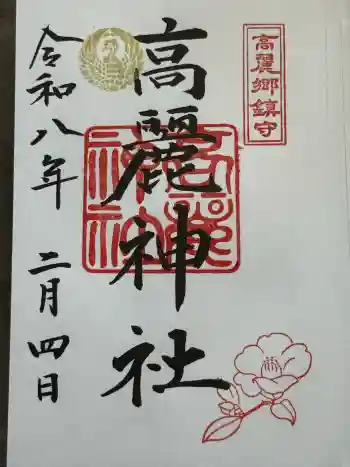 高麗郷鎮守
高麗神社
令和八年 二月四日
高麗神社